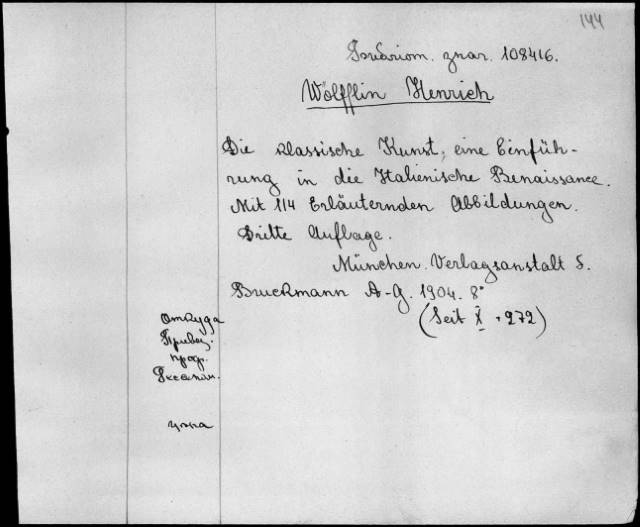 144
znar. 108416.
Wölfflin Henrich
Die klassische Kunst, eine Einfüh-
rung in die Italienische Renaissance.
Mit 114 Erläuternden Abbildungen.
Dritte Auflage.
München. Verlagsanstalt F.
Bruckmann A-G. 1904. 8°
(Seit X + 272)
откуда